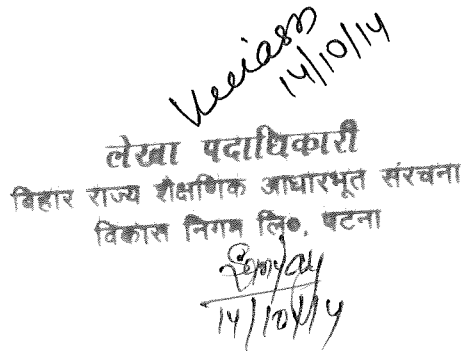 14/10/14
लेखा पदाधिकारी
बिहार राज्य शैक्षणिक आधारभूत संरचना
विकास निगम लि०, पटना
14/10/14